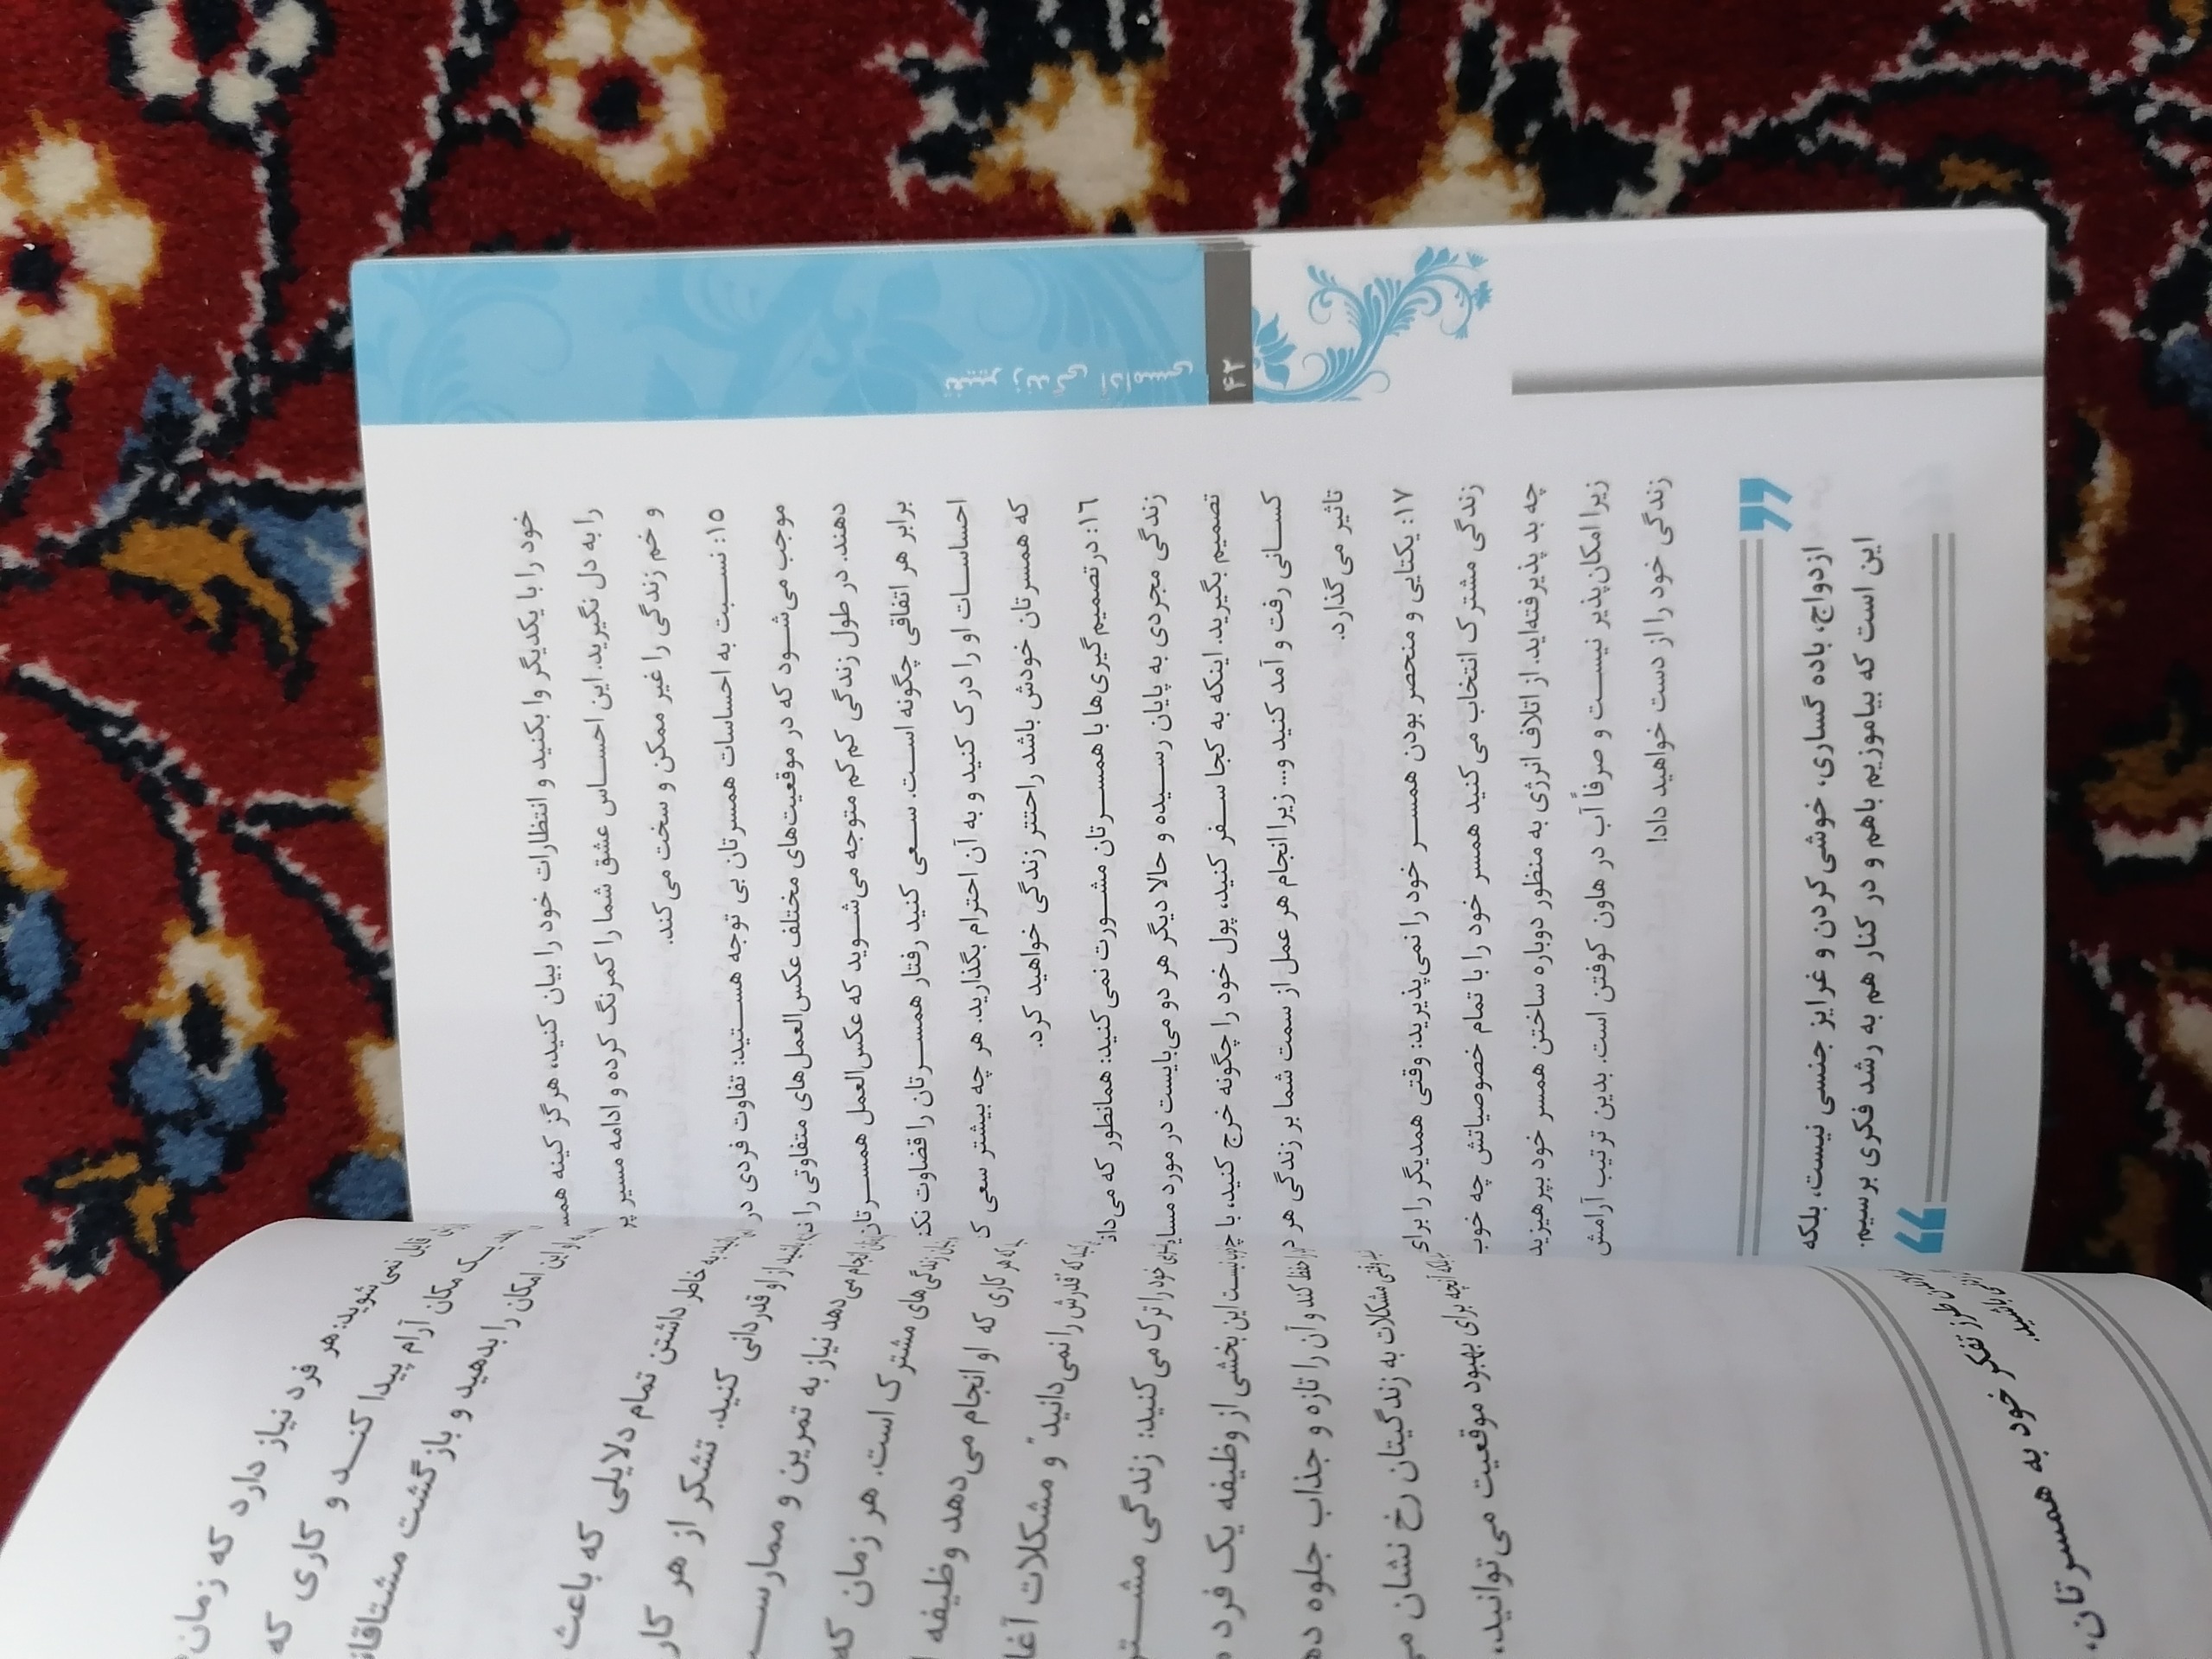 تغییر زندگی آدامسی
۴۲
خود را با یکدیگر وا بکنید و انتظارات خود را بیان کنید، هرگز کینه
را به دل نگیرید. این احساس عشق شما را کمرنگ کرده و ادامه مسیر پر
و خم زندگی را غیر ممکن و سخت می‌کند.
۱۵: نسبت به احساسات همسرتان بی توجه هستید: تفاوت فردی در
موجب می‌شود که در موقعیت‌های مختلف عکس‌العمل‌های متفاوتی را
دهند. در طول زندگی کم کم متوجه می‌شوید که عکس‌العمل همسرتان
برابر هر اتفاقی چگونه است. سعی کنید رفتار همسرتان را قضاوت
احساسات او را درک کنید و به آن احترام بگذارید. هر چه بیشتر سعی
که همسرتان خودش باشد راحتتر زندگی خواهید کرد.
۱۶: در تصمیم گیری‌ها با همسرتان مشورت نمی‌کنید: همانطور که
زندگی مجردی به پایان رسیده و حالا دیگر هر دو می‌بایست در مورد
تصمیم بگیرید. اینکه به کجا سفر کنید، پول خود را چگونه خرج کنید، با
کسانی رفت و آمد کنید و... زیرا انجام هر عمل از سمت شما بر زندگی هر
تاثیر می‌گذارد.
۱۷: یکتایی و منحصر بودن همسر خود را نمی‌پذیرید: وقتی همدیگر را برای
زندگی مشترک انتخاب می‌کنید همسر خود را با تمام خصوصیاتش چه خوب
چه بد پذیرفته‌اید. از اتلاف انرژی به منظور دوباره ساختن همسر خود بپرهیزید
زیرا امکان‌پذیر نیست و صرفاً آب در هاون کوفتن است. بدین ترتیب آرامش
زندگی خود را از دست خواهید داد!
ازدواج، باده گساری، خوشی کردن و غرایز جنسی نیست، بلکه
این است که بیاموزیم باهم و در کنار هم به رشد فکری برسیم.
قایل نمی‌شوید: هر فرد نیاز دارد که زمان
یک مکان آرام پیدا کند و کاری که
این امکان را بدهید و بازگشت
خاطر داشتن تمام دلایلی که باعث
از او قدردانی کنید. تشکر از هر کار
انجام می‌دهد نیاز به تمرین و
زندگی‌های مشترک است. هر زمان که
که هر کاری که او انجام می‌دهد وظیفه
که قدرش را نمی‌دانید" و مشکلات
خود را ترک می‌کنید: زندگی
این بخشی از وظیفه یک فرد
حفظ کند و آن را تازه و جذاب جلوه
مشکلات به زندگیتان رخ نشان
آنچه برای بهبود موقعیت می‌توانید،
طرز تفکر خود به همسرتان،